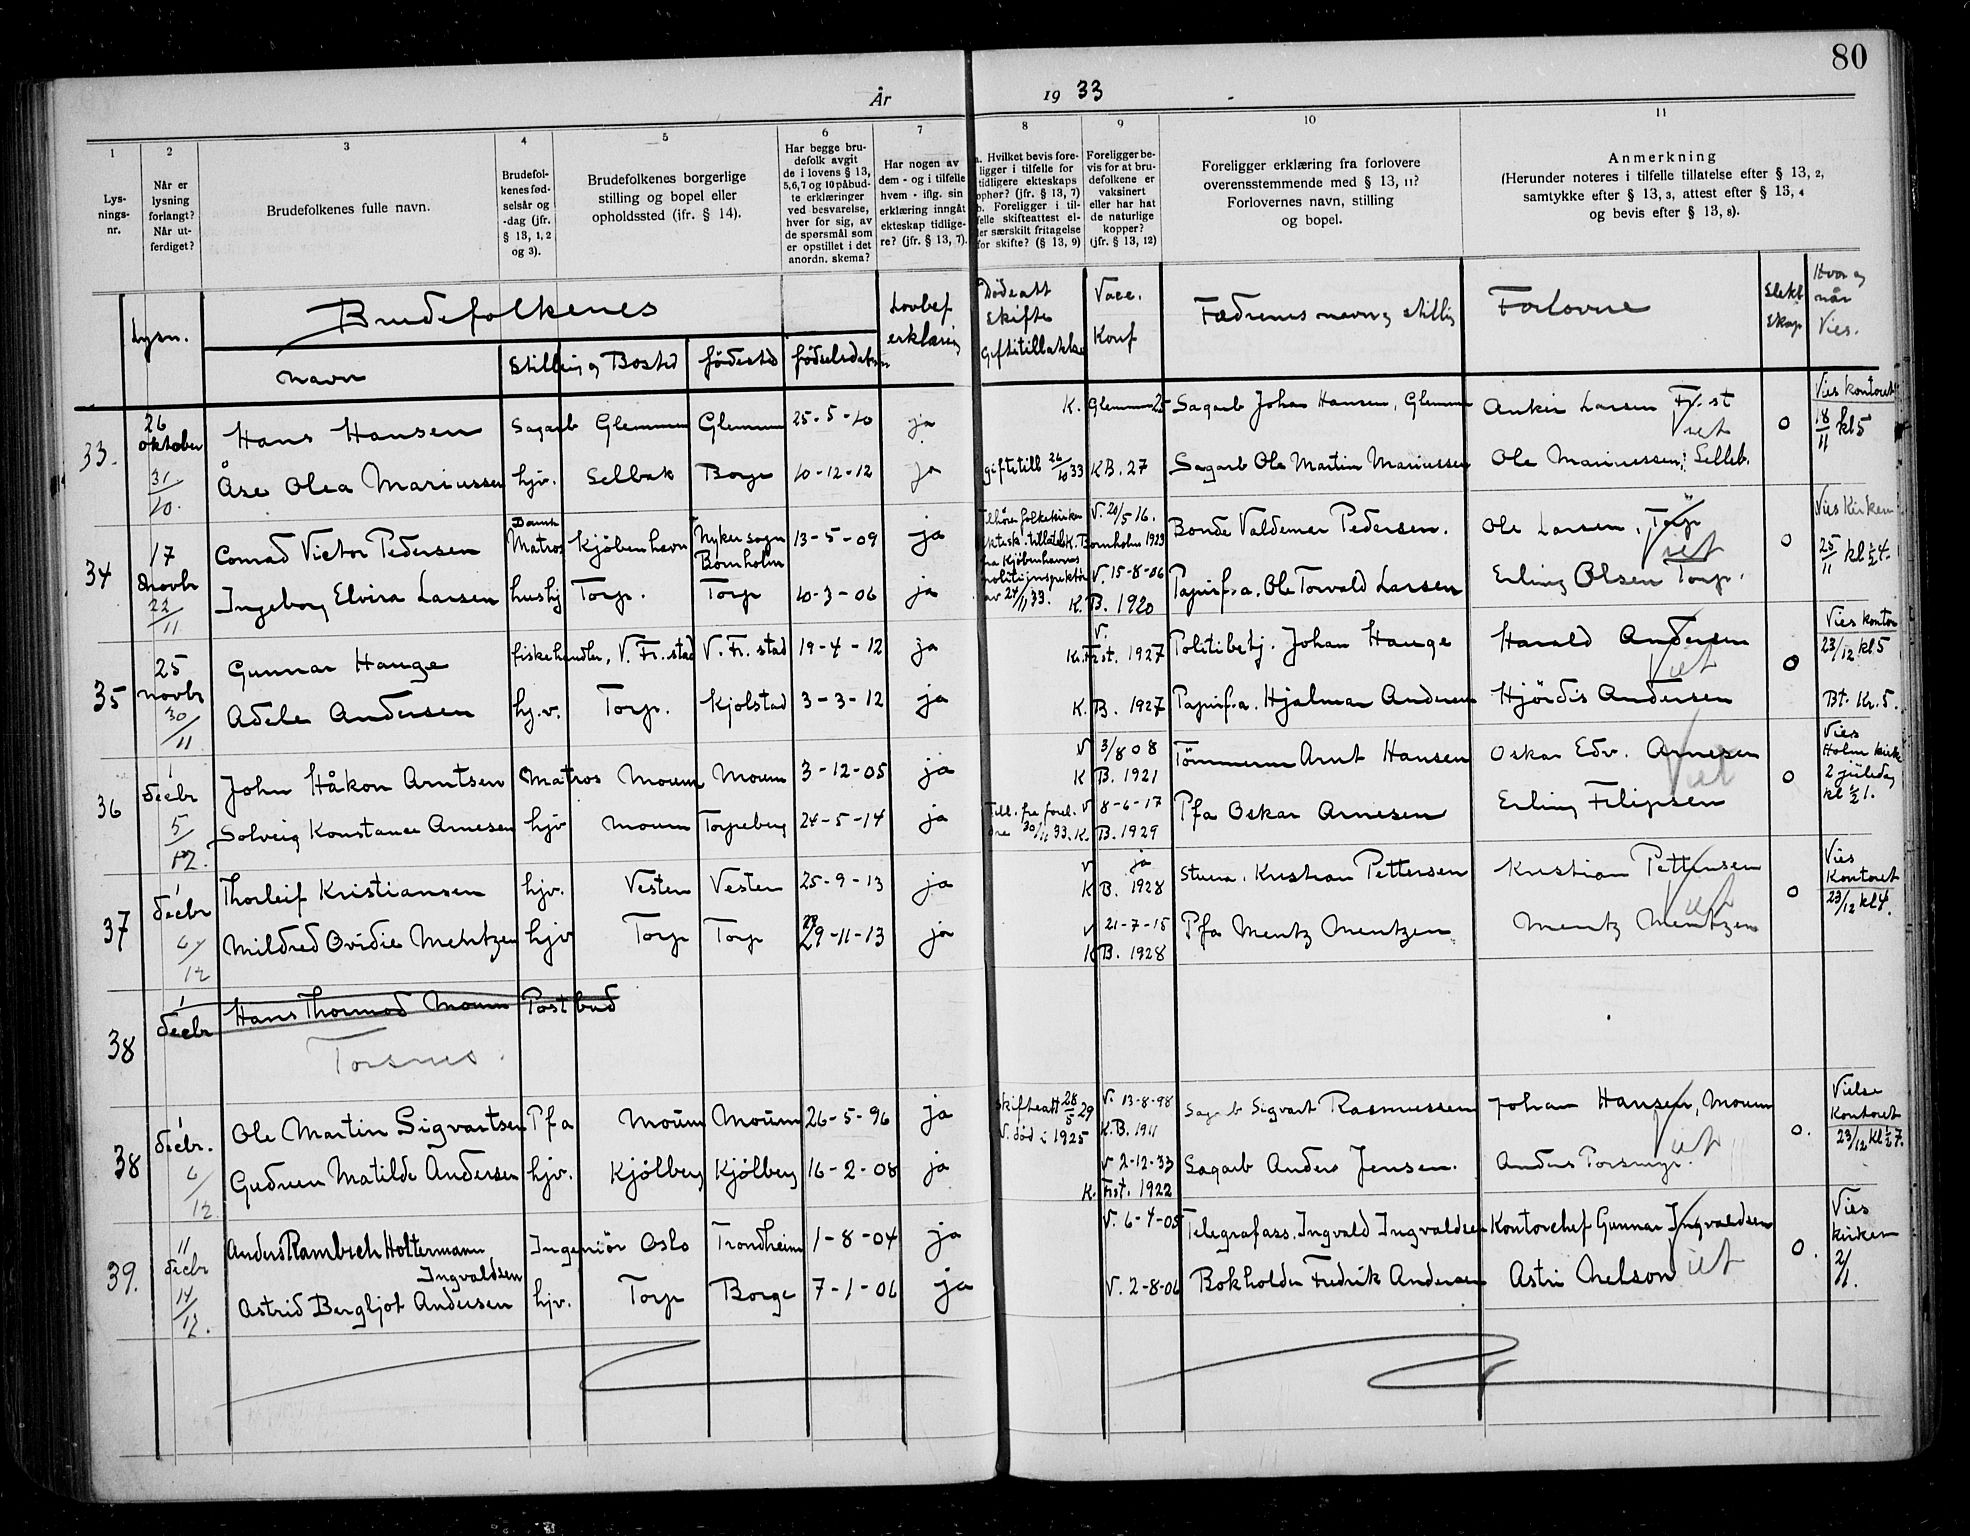 80
År 19 33
1 2 3 4 5 6 7 8 9 10 11
Lys-
nings-
nr.
Når er
lysning
forlangt?
Når ut-
ferdiget?
Brudefolkenes fulle navn.
Brudefol-
kenes fød-
selsår og
-dag (jfr.
§ 13, 1, 2
og 3).
Brudefolkenes borgerlige
stilling og bopel eller
opholdssted (ifr. § 14).
Har begge bru-
defolk avgit
de i lovens § 13,
5, 6, 7 og 10 påbud-
te erklæringer
ved besvarelse,
hver for sig, av
de spørsmål som
er opstillet i det
anordn. skema?
Har nogen av
dem - og i tilfelle
hvem - iflg. sin
erklæring inngåt
ekteskap tidlige-
re? (jfr. § 13, 7).
a. Hvilket bevis fore-
ligger i tilfelle for
tidligere ekteskaps
ophør? (jfr. § 13, 7)
b. Foreligger i til-
felle skifteattest el-
ler særskilt fritagelse
for skifte? (§ 13, 9)
Foreligger be-
vis for at bru-
defolkene er
vaksinert
eller har hat
de naturlige
kopper?
(jfr. § 13, 12)
Foreligger erklæring fra forlovere
overensstemmende med § 13, 11?
Forlovernes navn, stilling
og bopel.
Anmerkning
(Herunder noteres i tilfelle tillatelse efter § 13, 2,
samtykke efter § 13, 3, attest efter § 13, 4
og bevis efter § 13, 8).
Lysn.
Brudefolkenes
navn
Stilling og Bosted
fødested
fødselsdatum
Lovbef
erklæring
Dødsatt
Skifte
Giftetillatelse
Vacc.
Konf
Fædrenes navn og stilling
Forlovere
Slekt
skap
Hvor og
når
Vies.
33. 26 oktober Hans Hansen Sagarb Glemmen Glemmen 25-5-10 ja K. Glemmen 25 Sagarb Johan Hansen, Glemmen Anker Larsen Fr.st 0 Vies kontoret 18/11 kl 5
Viet
31/10. Åse Olea Mariussen hjv. Selbak Borge 10-12-12 ja giftetill 26/10 33 K B. 27 Sagarb Ole Martin Mariussen Ole Mariussen, Selleb.
34 17 Novbr Conrad Victor Pedersen Dansk Matros Kjöbenhavn Nyker sogn Bornholm 13-5-09 ja Tilhører folkekirken V. 20/5 16. K. Bornholm 1923 Bonde Valdemar Pedersen. Ole Larsen, Torp 0 Vies Kirken 25/11 kl ½4.
ektesk. tillatelse
fra Kjøbenhavns
politiinspektør
av 24/11 33.
Viet
22/11 Ingeborg Elvira Larsen hushj Torp. Torp 10-3-06 ja V. 15-8-06 K. B. 1920 Papirf.a. Ole Torvald Larsen Erling Olsen Torp.
35 25 novbr Gunnar Hauge fiskehandler, V. Fr.stad V. Fr.stad 19-4-12 ja V. K. Frst. 1927 Politibetj. Johan Hauge Harald Andersen 0 Vies kontor 23/12 kl 5
Viet
30/11 Adele Andersen hj.v. Torp. Kjolstad 3-3-12 ja K. B. 1927 Papirf.a. Hjalmar Andersen Hjördis Andersen Bt. Kr. 5.
36 1 decbr John Håkon Arntsen Matros Moum Moum 3-12-05 ja V 3/8 08 K B. 1921 Tömmerm Arnt Hansen Oskar Edv. Arnesen 0 Vies Holm kirke 2 juledag kl ½1.
Viet
5/12. Solveig Konstance Arnesen hjv Moum Torpeberg 24-5-14 ja Till. fra forel-
dre 30/11 33. V 8-6-17 K. B. 1929 Pfa Oskar Arnesen Erling Filipsen
37 1 decbr Thorleif Kristiansen hjv. Vesten Vesten 25-9-13 ja V ja K B. 1928 Kristian Pettersen Kristian Pettersen 0 Vies Kontoret 23/12 kl 4.
Viet
6/12 Mildred Ovidie Mentzen hjv Torp Torp 29-11-13 ja V 21-7-15 K B. 1928 Pfa Mentz Mentzen Mentz Mentzen
38 1 decbr Hans Thormod Moum Postbud
Torsnes.
38 1 decbr. Ole Martin Sigvartsen Pfa Moum Moum 26-5-96 ja Skifteatt 28/5 29 V. 13-8-98 Sagarb Sigvart Rasmussen Johan Hansen, Moum 0. Vielse Kontoret 23/12 kl ½7.
V. död i 1925 K.B. 1911
Viet
6/12 Gudrun Matilde Andersen hjv. Kjölberg Kjölberg 16-2-08 ja V 2-12-33 K. Frst. 1922 Sagarb Anders Jensen. Anders
39. 11 decbr Anders Rambech Holtermann Ingvaldsen Ingeniör Oslo Trondheim 1-8-04 ja V. 6-4-05 Telegrafass. Ingvald Ingvaldsen Kontorchef Gunnar Ingvaldsen 0. Vies kirken 2/1.
Viet
14/12. Astrid Bergljot Andersen hjv. Torp Borge 7-1-06 ja V. 2-8-06 Bokholder Fredrik Andersen Astri Nelson